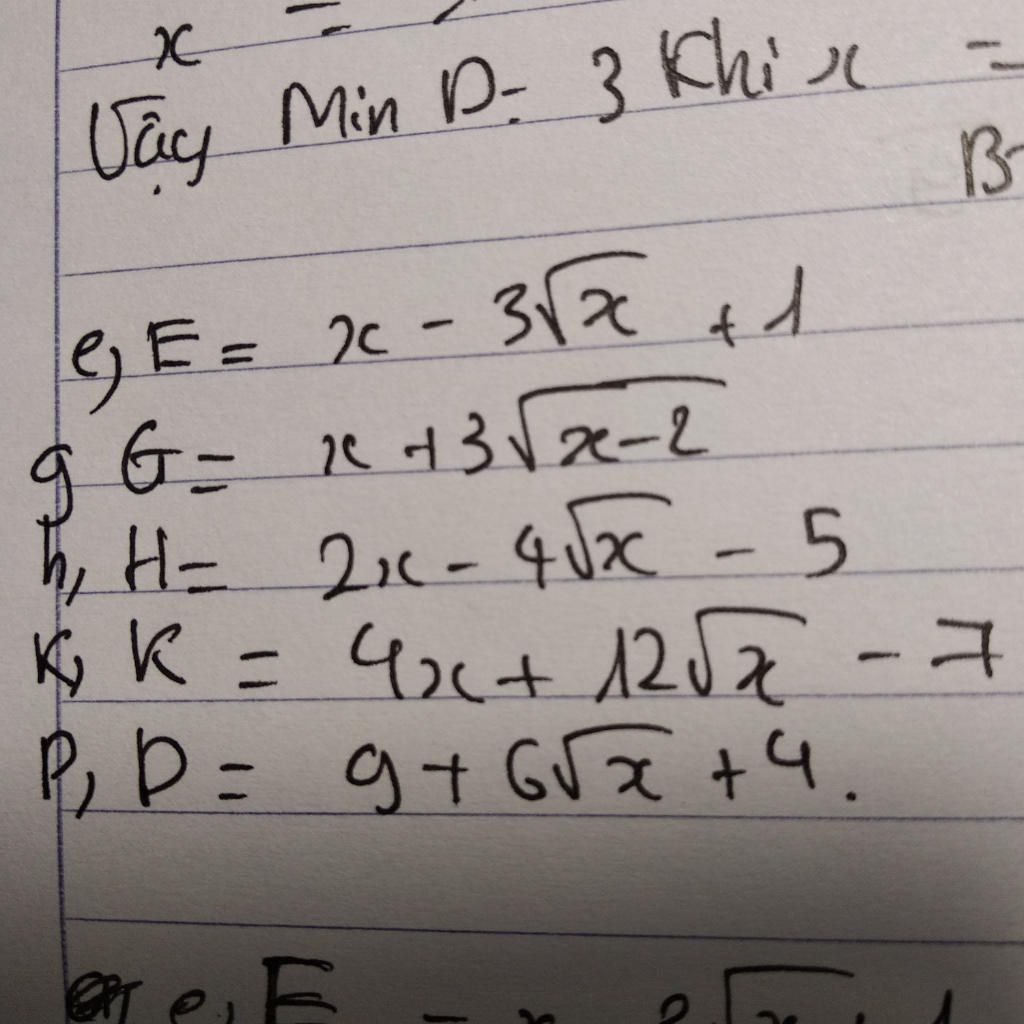 x =
Vậy Min D = 3 Khi x =
B
e, E = x - 3√x + 1
g G = x + 3√x-2
h, H = 2x - 4√x - 5
K, K = 4x + 12√x - 7
P, D = 9 + 6√x + 4.
e, E = x 1